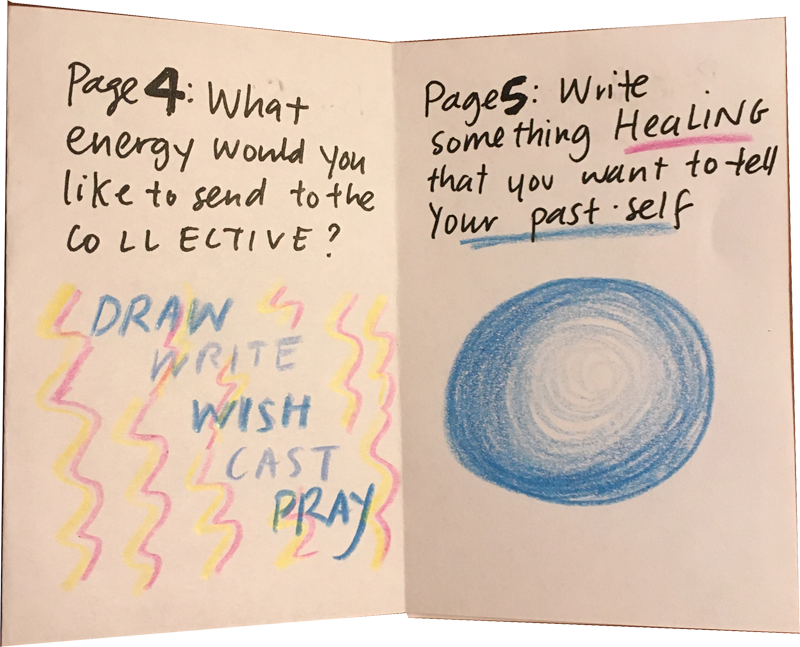 Page 4: What
energy would you
like to send to the
COLLECTIVE?
DRAW
WRITE
WISH
CAST
PRAY
Page 5: Write
something HeaLiNG
that you want to tell
your past-self